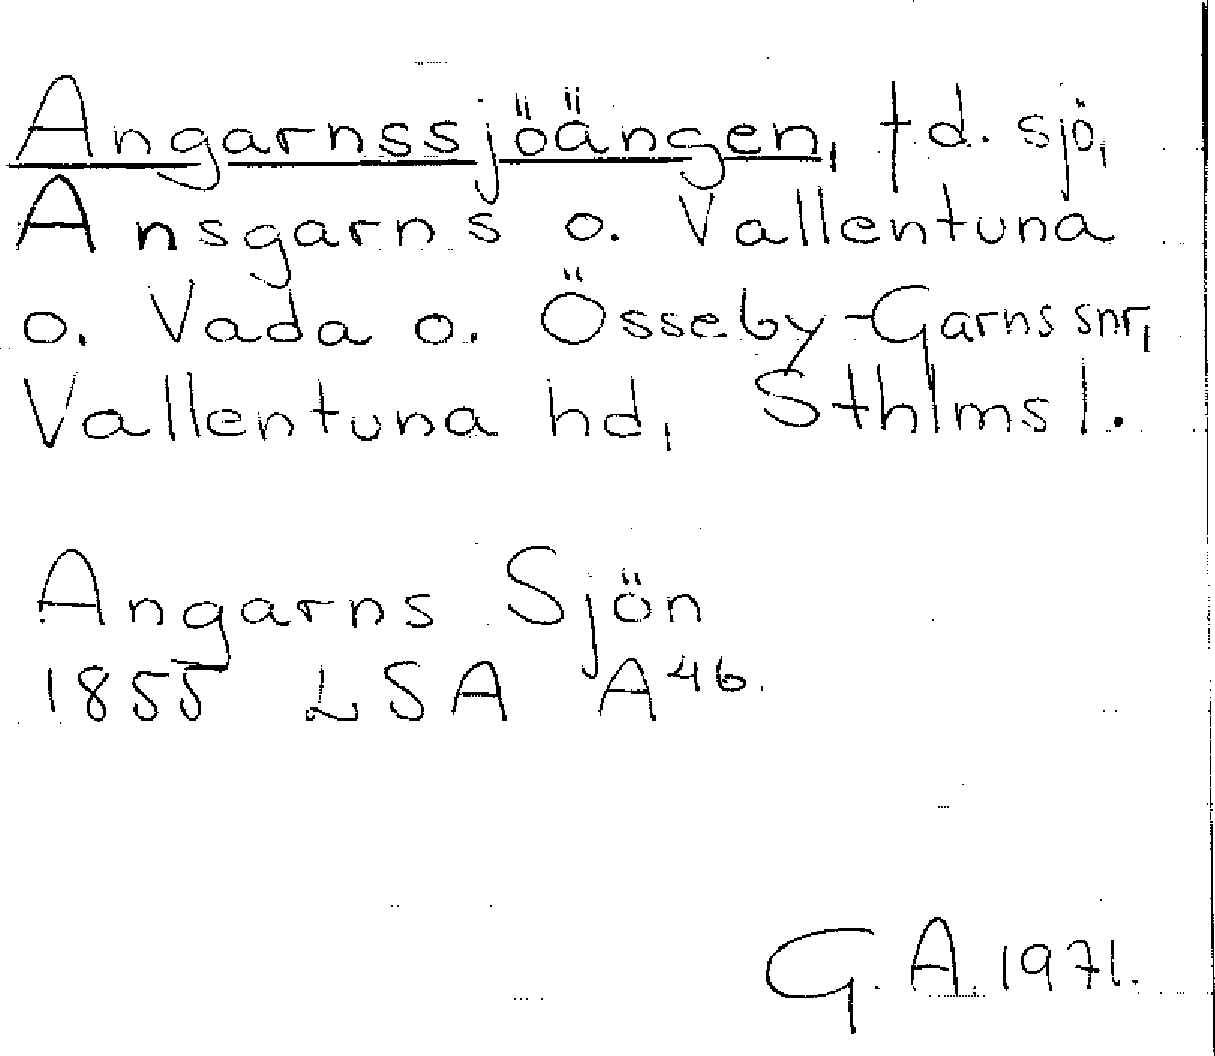 Angarnssjöängen, t.d. sjö,
Ansgarns o. Vallentuna
o. Vada o. Össeby-Garns snr,
Vallentuna hd, Sthlms l.
Angarns Sjön
1855 LSA A46.
G. A. 1971.